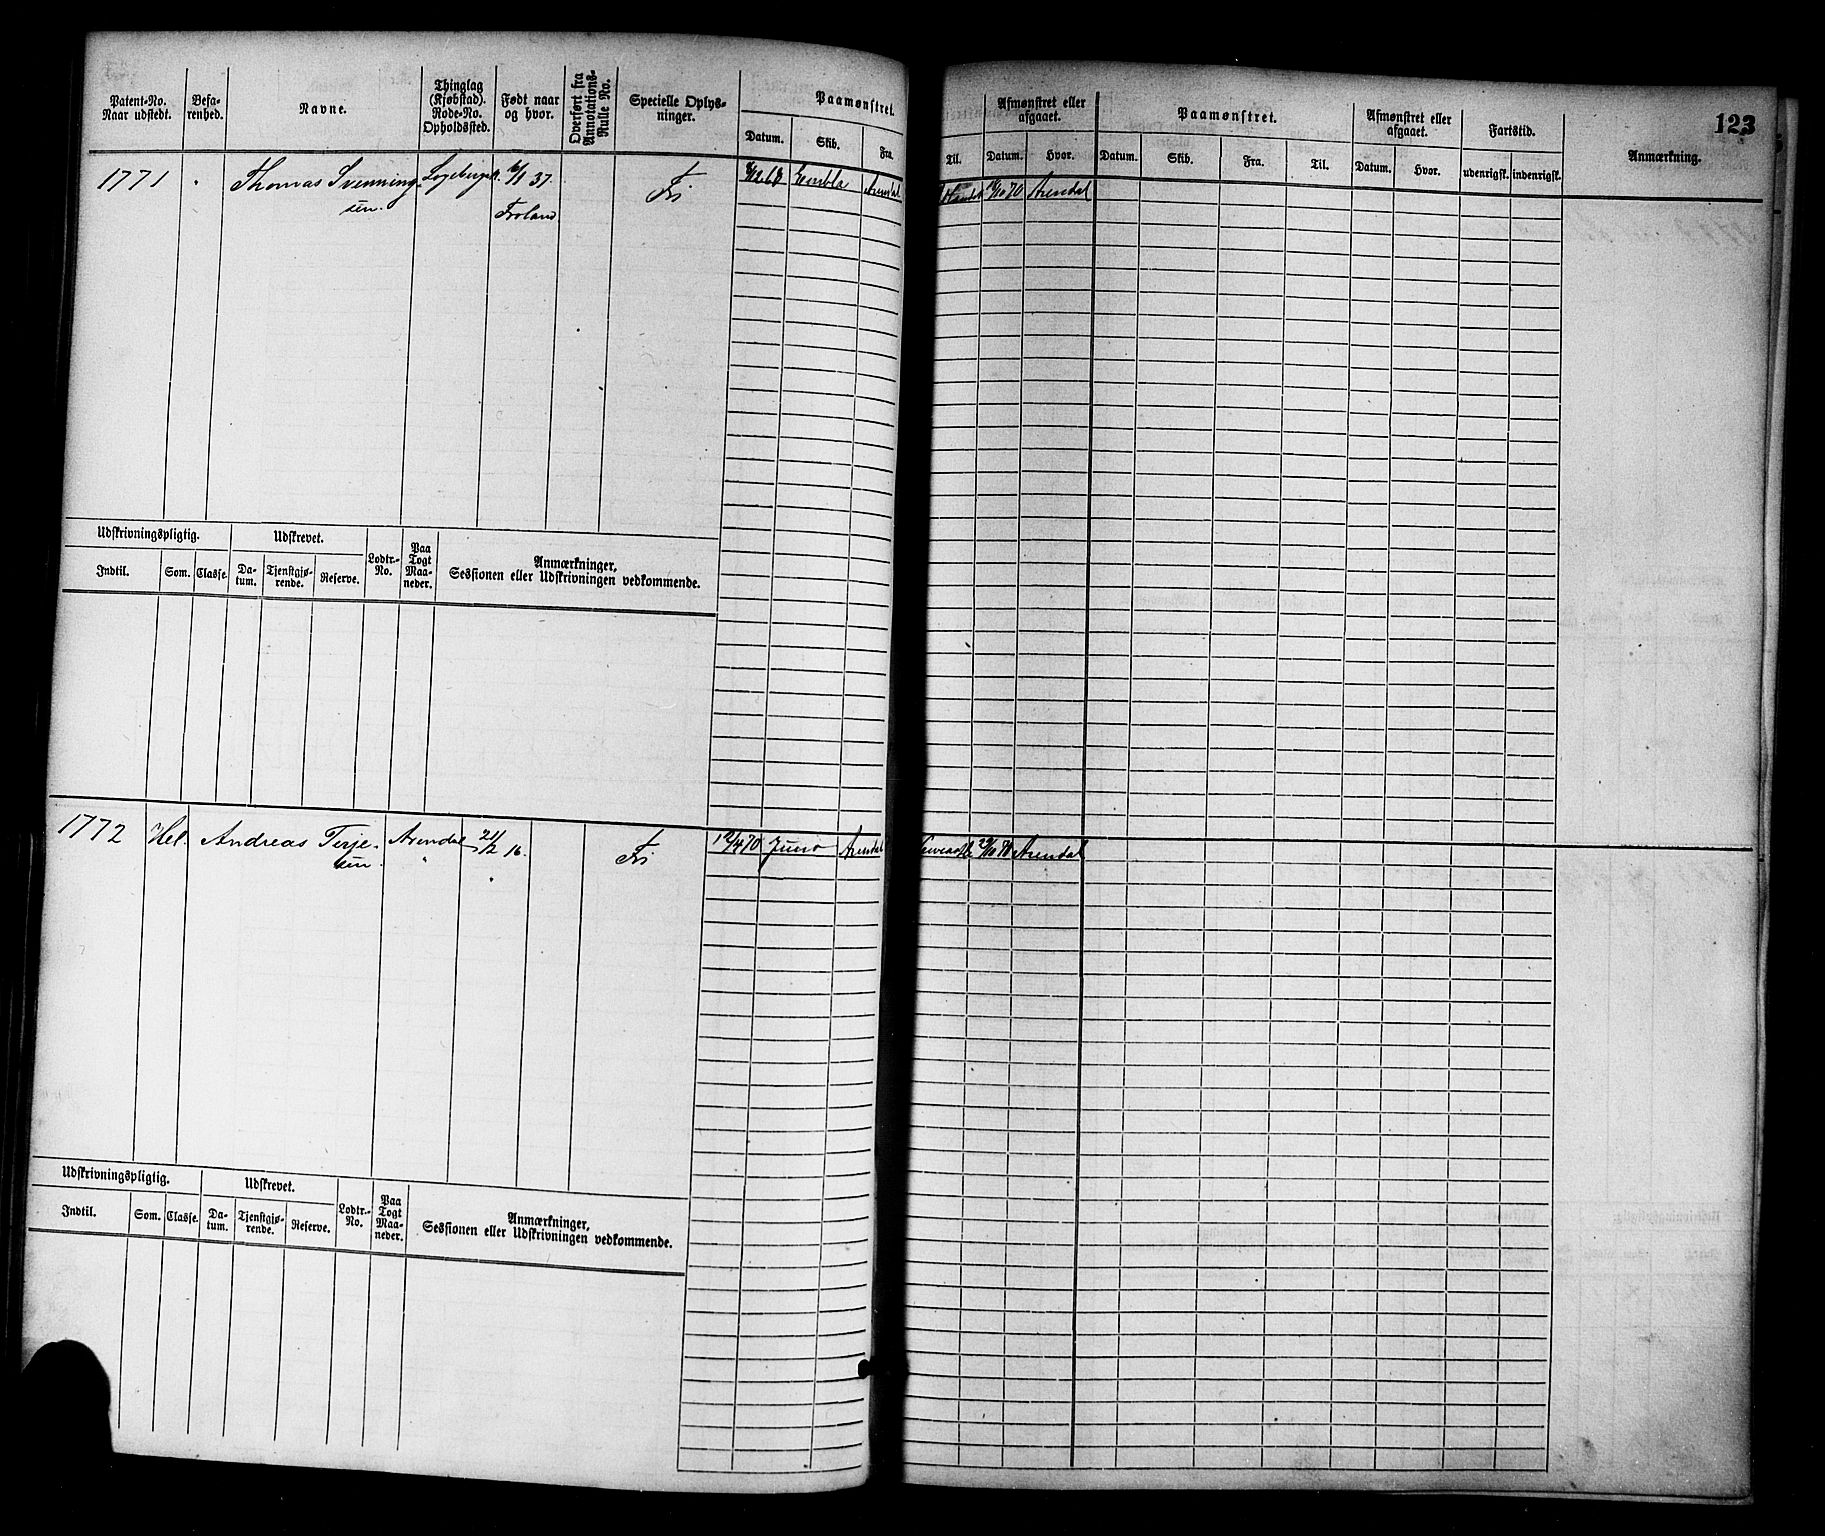 123
Patent-No. Naar udstedt.
Befarenhed.
Navne.
Thinglag (Kjøbstad). Rode-No. Opholdssted.
Født naar og hvor.
Overført fra Annotations-Rulle No.
Specielle Oplysninger.
Paamønstret.
Datum. Skib. Fra. Til.
Afmønstret eller afgaaet.
Datum. Hvor.
Paamønstret.
Datum. Skib. Fra. Til.
Afmønstret eller afgaaet.
Datum. Hvor.
Fartstid.
udenrigsk. indenrigsk.
Anmærkning.
1771 Thomas Svenning- 37. Fri Embla Arendal 70 Arendal
sen. Froland
Udskrivningspligtig. Udskrevet. Lodtr.-No. Paa Togt Maaneder. Anmærkninger, Sessionen eller Udskrivningen vedkommende.
Indtil. Som. Classe. Datum. Tjenstgjørende. Reserve.
1772 Hel. Andreas Terje- Arendal 21/2 16. Fri 12/4 70 Juno Arendal Arendal
sen.
Udskrivningspligtig. Udskrevet. Lodtr.-No. Paa Togt Maaneder. Anmærkninger, Sessionen eller Udskrivningen vedkommende.
Indtil. Som. Classe. Datum. Tjenstgjørende. Reserve.